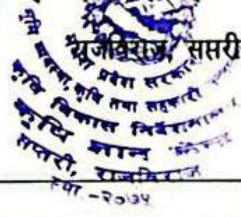 राजविराज, सप्तरी
प्रदेश सरकार
भूमि व्यवस्था, कृषि तथा सहकारी
कृषि विकास निर्देशनालय
कृषि ज्ञान केन्द्र
सप्तरी, राजविराज
स्था.-२०७५